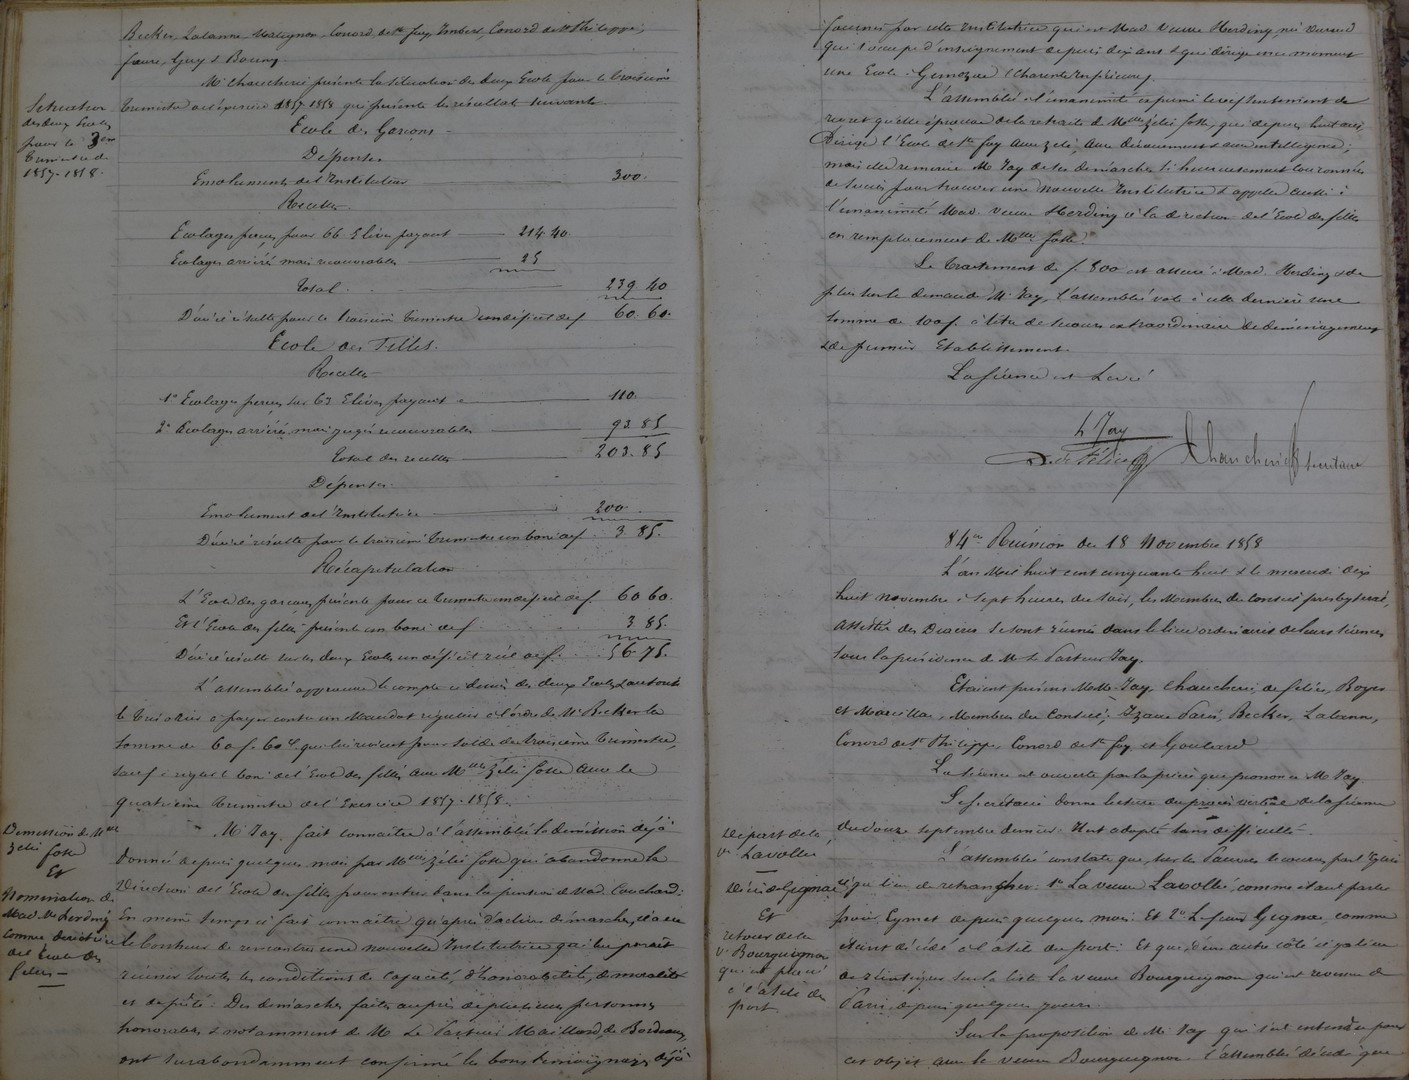 Becker, Lalanne, Matignon, Conord de Ste foy, Imbert, Conord de St Philippe,
faure, Guy & Bouny.
Mr Chaucherie présente la situation des deux Ecoles pour le troisième
trimestre de l'exercice 1857-1858 qui présente le résultat suivant
Situation
des deux Ecoles
pour le 3me
trimestre de
1857-1858.
Ecole des Garçons
Dépenses
Emoluments de l'Instituteur 300.
Recettes
Ecolages perçus pour 66 Elèves payant 214 40
Ecolages arriérés mais recouvrables 25
Total 239 40
D'où il résulte pour le troisième trimestre un déficit de f 60. 60.
Ecole des Filles.
Recettes
1° Ecolages perçus sur 63 Elèves payant 110.
2° Ecolages arriérés mais jugés recouvrables 93 85
Total des recettes 203. 85
Dépenses
Emolument de l'Institutrice 200.
D'où il résulte pour le troisième trimestre un boni de f 3 85.
Récapitulation
L'Ecole des garçons présente pour ce trimestre un déficit de f. 60 60.
Et l'Ecole des filles présente un boni de f. 3 85.
D'où il résulte sur les deux Ecoles un déficit réel de f. 56. 75.
L'assemblée approuve le compte ci dessus des deux Ecoles, autorise
le trésorier à payer contre un Mandat régulier à l'ordre de Mr Becker la
somme de 60 f. 60 c. qui lui revient pour solde du troisième trimestre,
sauf à régler le boni de l'Ecole des filles avec Melle Zélie Josse avec le
quatrième trimestre de l'Exercice 1857-1858.
Démission de Melle
Zélie Josse
Et
Nomination de
Mad. Ve Herding
comme directrice
de l'Ecole des
filles
Mr Jay fait connaître à l'assemblée la démission déjà
donnée depuis quelques mois par Melle Zélie Josse qui abandonne la
Direction de l'Ecole des filles pour entrer dans la pension de Mad. Couchard.
En même temps il fait connaître qu'après d'actives démarches, il a eu
le bonheur de rencontrer une nouvelle Institutrice qui lui paraît
réunir toutes les conditions de capacité, d'honorabilité, de moralité
et de piété. Des démarches faites auprès de plusieurs personnes
honorables & notamment de M. le Pasteur Maillard, de Bordeaux,
ont surabondamment confirmé les bons témoignages déjà
fournis par cette Institutrice qui est Mad. Veuve Herding, née
qui s'occupe d'enseignement depuis dix ans & qui dirige en ce moment
une Ecole à Gemozac (Charente Inférieure).
L'assemblée à l'unanimité exprime le vif sentiment de
regret qu'elle éprouve de la retraite de Melle Zélie Josse, qui depuis huit ans,
Dirige l'Ecole de Ste foy avec zèle, avec dévouement & avec intelligence;
mais elle remercie M. Jay de ses démarches si heureusement couronnées
de succès pour trouver une nouvelle Institutrice & appelle aussi à
l'unanimité Mad. veuve Herding à la direction de l'Ecole des filles
en remplacement de Melle Josse.
Le traitement de f. 800 est assuré à Mad. Herding & de
plus sur la demande de M. Jay, l'assemblée vote à cette dernière une
somme de 100 f. à titre de secours extraordinaire de déménagement
& de premier Etablissement.
La séance est levée
h Jay
D. de Félice
Chaucherie secrétaire
84me Réunion du 18 Novembre 1858
L'an Mil huit cent cinquante huit & le mercredi dix
huit novembre à sept heures du soir, les Membres du Conseil presbytéral,
assistés des Diacres se sont réunis dans le lieu ordinaire de leurs séances
sous la présidence de M. le Pasteur Jay.
Etaient présens MM. Jay, Chaucherie, de félice, Boyer
et Marcillac, Membres du Conseil; Izaac Paris, Becker, Lalanne,
Conord de St Philippe, Conord de Ste foy et Goulard
La séance est ouverte par la prière que prononce M. Jay
Le secrétaire donne lecture du procès verbal de la séance
du douze septembre dernier. Il est adopté sans difficulté.
Départ de la
ve Lavollée
Décès de Gignac
Et
retour de la
ve Bourguignon
à l'asile du
port.
L'assemblée constate que, sur les Pauvres secourus par l'Eglise
il y a lieu de retrancher: 1° La veuve Lavollée, comme étant partie
pour Eymet depuis quelques mois. Et 2° Le sieur Gignac, comme
étant décédé à l'asile du port. Et que, d'un autre côté il y a lieu
de réintégrer sur la liste la veuve Bourguignon qui est revenue de
Paris depuis quelques jours.
Sur la proposition de M. Jay qui s'est entendu pour
cet objet avec la veuve Bourguignon, l'assemblée décide que